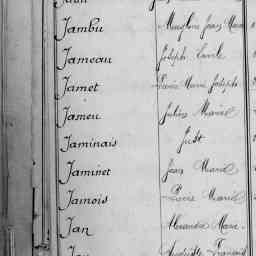 Jambu Jean Marie
Jameau Joseph
Jamet Pierre Marie Joseph
Jameu Julien Marie
Jaminais Just
Jaminet Jean Marie
Jamois Pierre Marie
Jan Alexandre Marie
Jan François